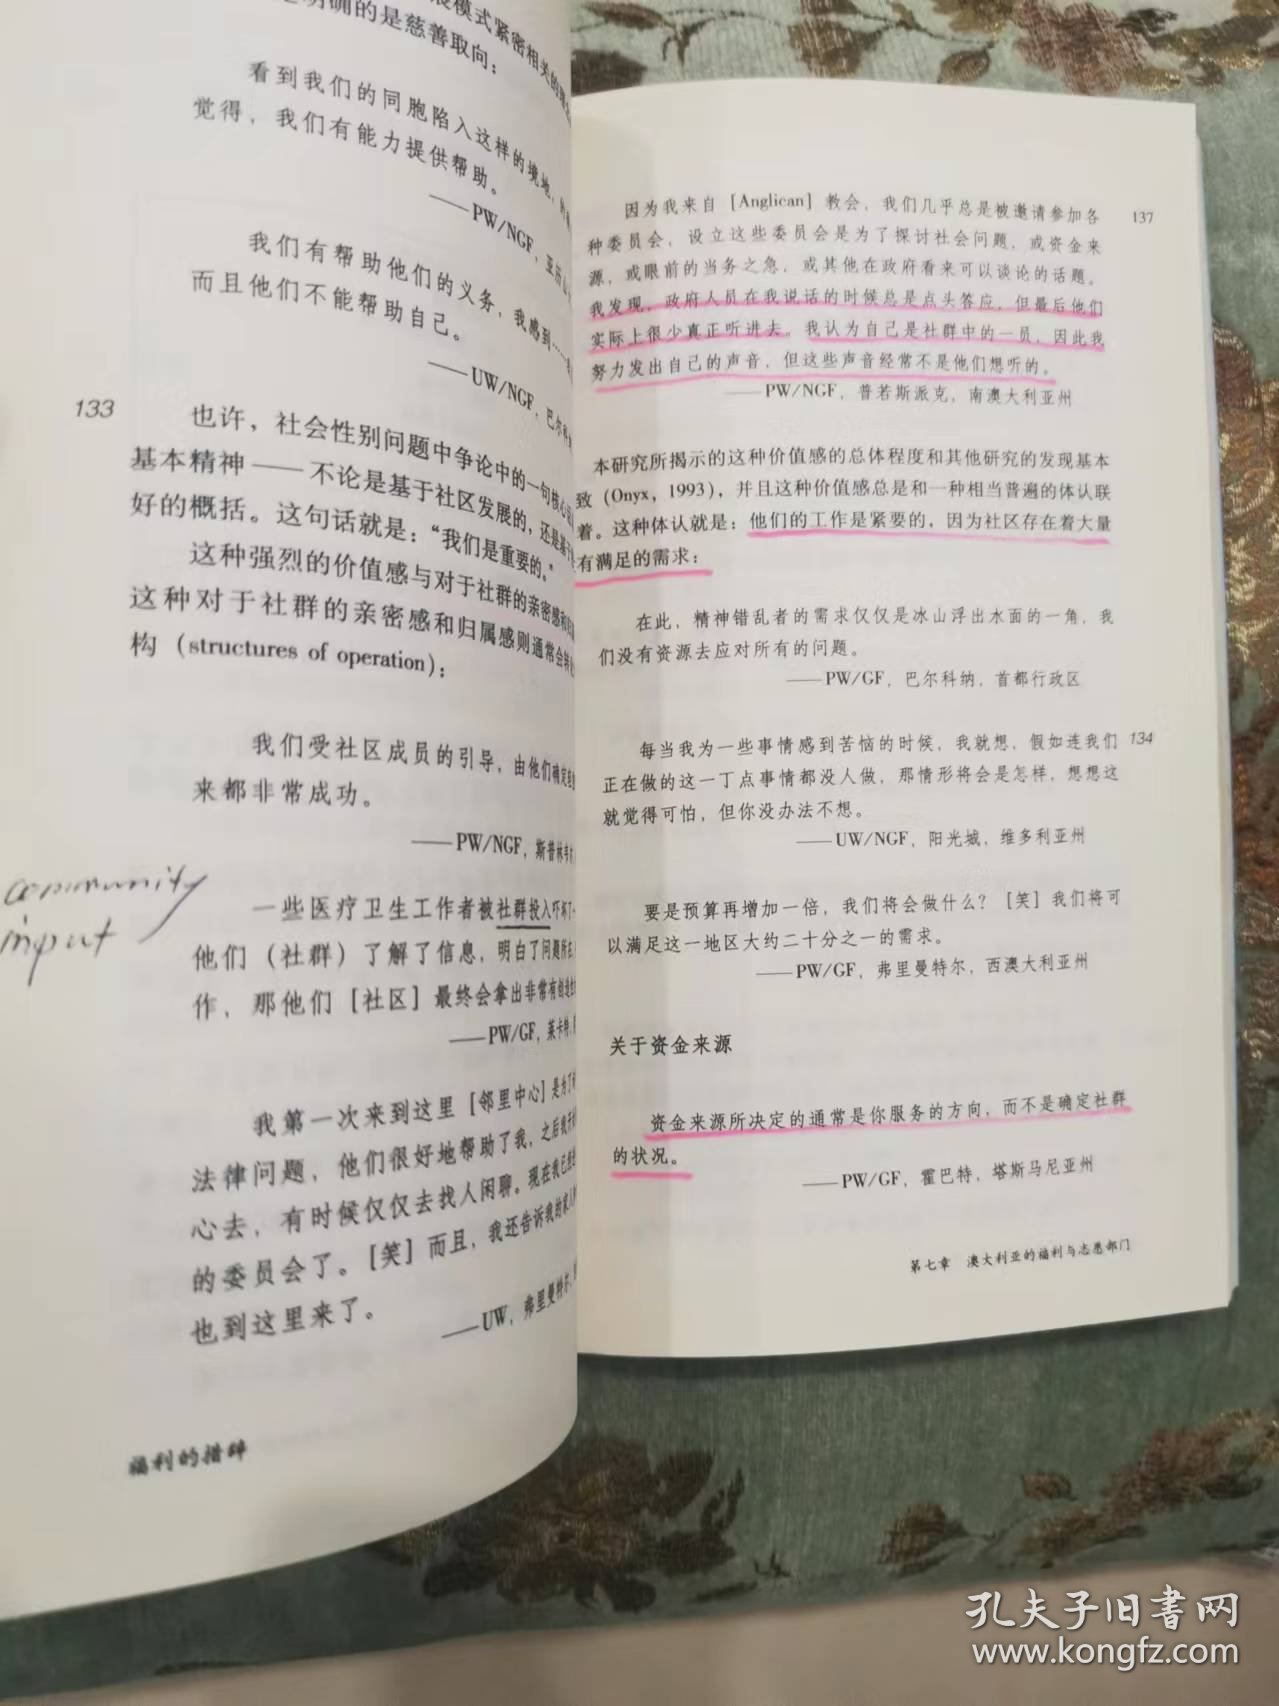 展模式紧密相关的
明确的是慈善取向：
看到我们的同胞陷入这样的境地，
觉得，我们有能力提供帮助。
——PW/NGF，亚历山
我们有帮助他们的义务，我感到……
而且他们不能帮助自己。
——UW/NGF，巴尔科
133
也许，社会性别问题中争论中的一句核心
基本精神——不论是基于社区发展的，还是基于
好的概括。这句话就是：“我们是重要的。”
这种强烈的价值感与对于社群的亲密感和归
这种对于社群的亲密感和归属感则通常会转
构（structures of operation）：
我们受社区成员的引导，由他们确定
来都非常成功。
——PW/NGF，斯普林
community
input
一些医疗卫生工作者被社群投入吓坏了
他们（社群）了解了信息，明白了问题所在
作，那他们［社区］最终会拿出非常有创造
——PW/GF，莱卡特，
我第一次来到这里［邻里中心］是为了
法律问题，他们很好地帮助了我，之后我开
心去，有时候仅仅去找人闲聊。现在我已
的委员会了。［笑］而且，我还告诉我的家人
也到这里来了。
——UW，弗里曼特尔，
福利的措辞
因为我来自［Anglican］教会，我们几乎总是被邀请参加各
137
种委员会，设立这些委员会是为了探讨社会问题，或资金来
源，或眼前的当务之急，或其他在政府看来可以谈论的话题。
我发现，政府人员在我说话的时候总是点头答应，但最后他们
实际上很少真正听进去。我认为自己是社群中的一员，因此我
努力发出自己的声音，但这些声音经常不是他们想听的。
——PW/NGF，普若斯派克，南澳大利亚州
本研究所揭示的这种价值感的总体程度和其他研究的发现基本
致（Onyx，1993），并且这种价值感总是和一种相当普遍的体认联
着。这种体认就是：他们的工作是紧要的，因为社区存在着大量
有满足的需求：
在此，精神错乱者的需求仅仅是冰山浮出水面的一角，我
们没有资源去应对所有的问题。
——PW/GF，巴尔科纳，首都行政区
每当我为一些事情感到苦恼的时候，我就想，假如连我们
134
正在做的这一丁点事情都没人做，那情形将会是怎样，想想这
就觉得可怕，但你没办法不想。
——UW/NGF，阳光城，维多利亚州
要是预算再增加一倍，我们将会做什么？［笑］我们将可
以满足这一地区大约二十分之一的需求。
——PW/GF，弗里曼特尔，西澳大利亚州
关于资金来源
资金来源所决定的通常是你服务的方向，而不是确定社群
的状况。
——PW/GF，霍巴特，塔斯马尼亚州
第七章 澳大利亚的福利与志愿部门
孔夫子旧书网
www.kongfz.com